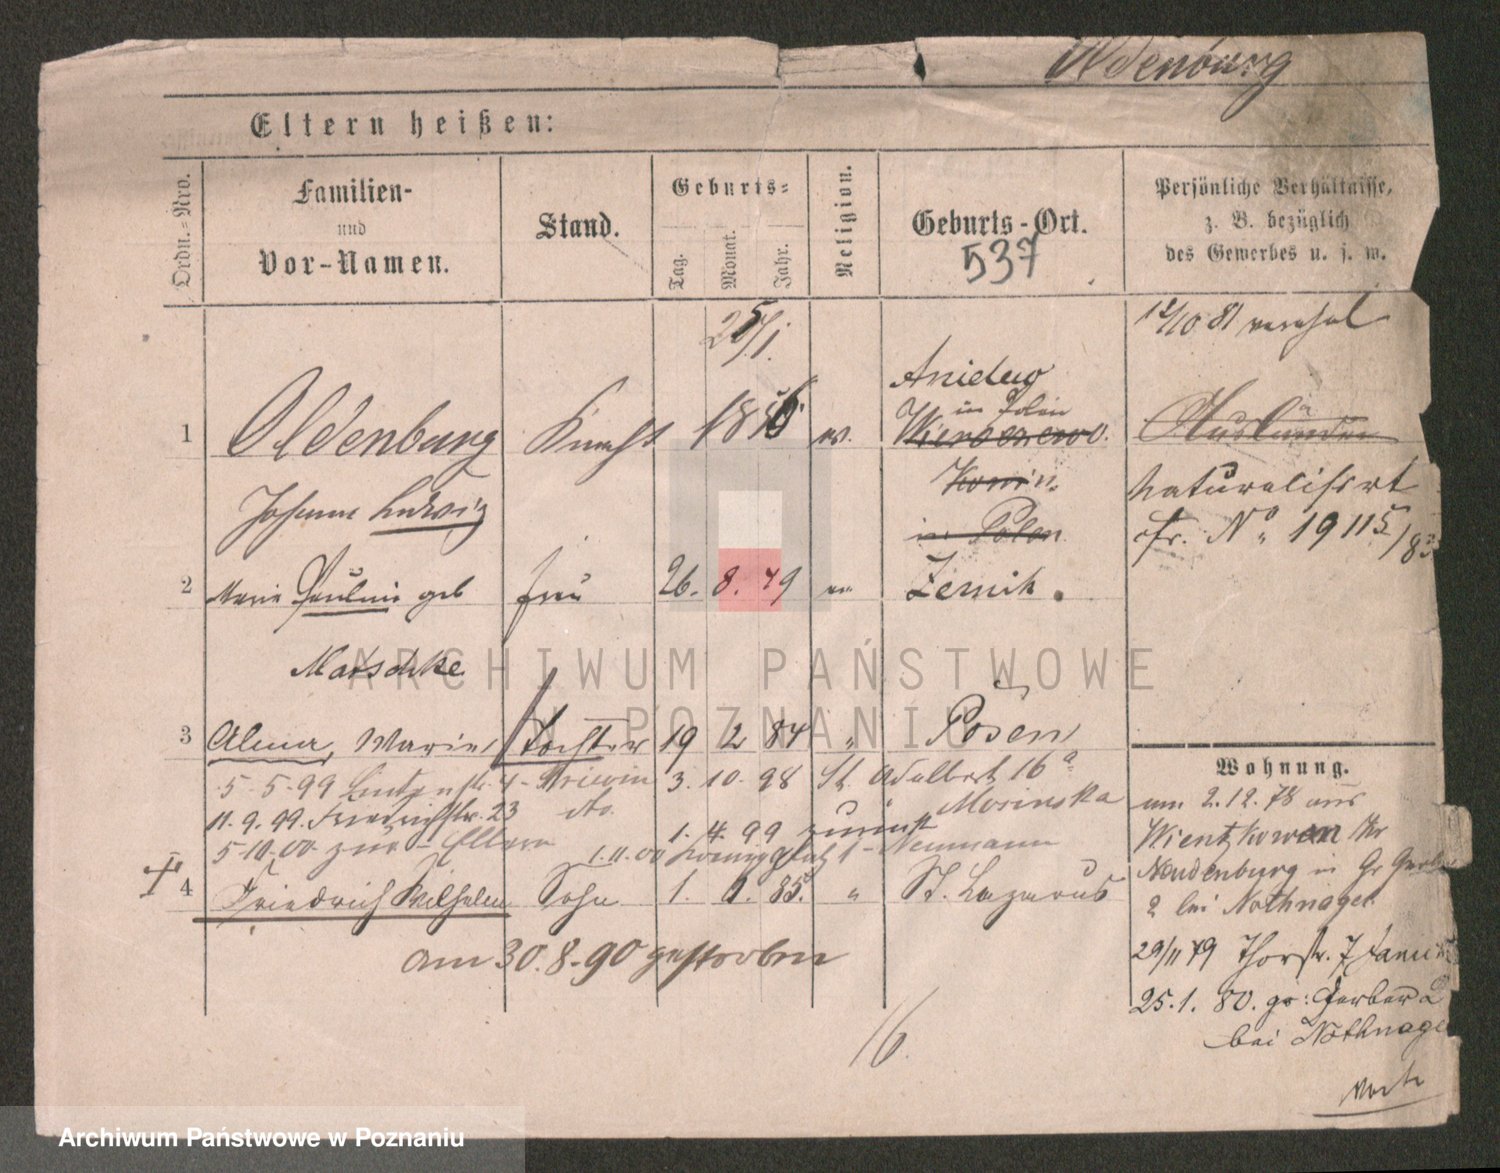 Oldenburg
Eltern heißen:
Ordn.=Nro.
Familien-
und
Vor-Namen.
Stand.
Geburts=
Tag.
Monat.
Jahr.
Religion.
Geburts-Ort.
537
Persönliche Verhältnisse,
z. B. bezüglich
des Gewerbes u. s. w.
25/1.
12/10 81
Anielewo
in Polen
1 Oldenburg Knecht 1856 ev. Ausländer
Konin.
Naturalisirt
Johann Ludwig in Polen
fr. No. 19 115/83
2 Marie Pauline geb Frau 26. 8. 79 ev Zernik.
Matschke
3 Alma, Marie, Tochter 19 2 84 " Posen
Wohnung.
5-5-99 3. 10. 98 St. Adalbert 16a
Morinska
am 2.12.78 aus
11.9.99. Friedrichstr. 23 do.
1. 4. 99 zurück
5-10.00 zur - Eltern 1.11.00 Königsplatz 1 - Neumann
Neudenburg in Gr Gerber
4 Friedrich Wilhelm Sohn 1. 1. 85. " St. Lazarus
2 bei Nothnagel
am 30.8.90 gestorben
29/11 79 Thorstr. 7
25.1. 80. gr: Gerber 2
bei Nothnagel
16.
ARCHIWUM PAŃSTWOWE
W POZNANIU
Archiwum Państwowe w Poznaniu